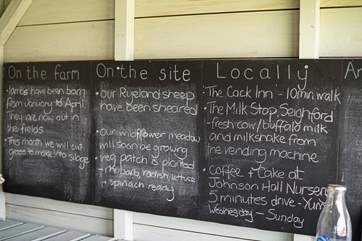 On the farm
• lambs have been born
from January to April
They are now out in
the fields
• This month we will cut
grass to make into silage
On the site
• our Ryeland sheep
have been sheared
• our wildflower meadow
will soon be growing
• veg patch is planted
radish, lettuce
+ spinach ready
Locally
• The Cock Inn - 10min walk
• The Milk Stop, Seighford
- fresh cow/buffalo milk
and milkshake from
the vending machine
• Coffee + Cake at
Johnson Hall Nurser
5 minutes drive - Yum
Wednesday - Sunday
Ar